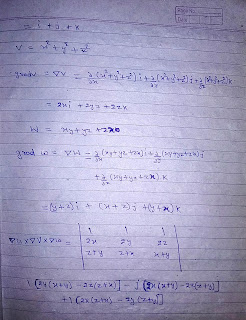 = i + j + k
V = x² + y² + z²
grad v = ∇V = ∂/∂x (x²+y²+z²) i + ∂/∂x (x²+y²+z²) j + ∂/∂x (x²+y²+z²) k
= 2xi + 2yj + 2zk
W = xy + yz + zx
grad w = ∇W = ∂/∂x (xy+yz+zx) i + ∂/∂x (xy+yz+zx) j
+ ∂/∂x (xy+yz+zx) k
= (y+z) i + (x+z) j + (y+x) k
∇u × ∇V × ∇w = | 1 1 1
2x 2y 2z
z+y z+x x+y |
1 [2y(x+y) - 2z(z+x)] - 1 [2x(x+y) - 2z(z+y)]
+1 [2x(z+x) - 2y(z+y)]